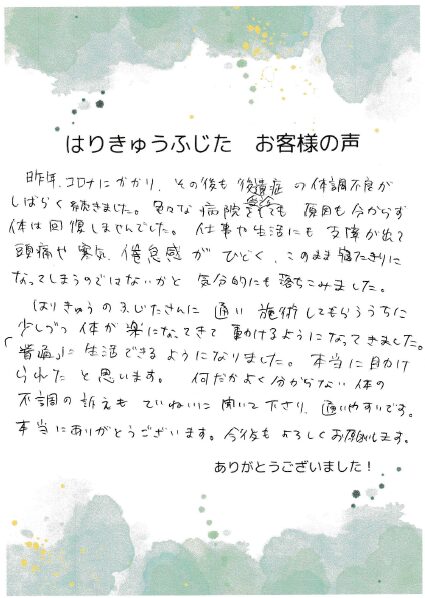 はりきゅうふじた お客様の声
昨年、コロナにかかり、その後も後遺症の体調不良が
しばらく続きました。色々な病院を受診しても原因も分からず
体は回復しませんでした。仕事や生活にも支障が出て
頭痛や寒気、倦怠感がひどく、このまま寝たきりに
なってしまうのではないかと気分的にも落ちこみました。
はりきゅうのふじたさんに通い施術してもらううちに
少しづつ体が楽になってきて動けるようになってきました。
「普通」に生活できるようになりました。本当に助け
られたと思います。何だかよく分からない体の
不調の訴えもていねいに聞いて下さり、通いやすいです。
本当にありがとうございます。今後もよろしくお願いします。
ありがとうございました!